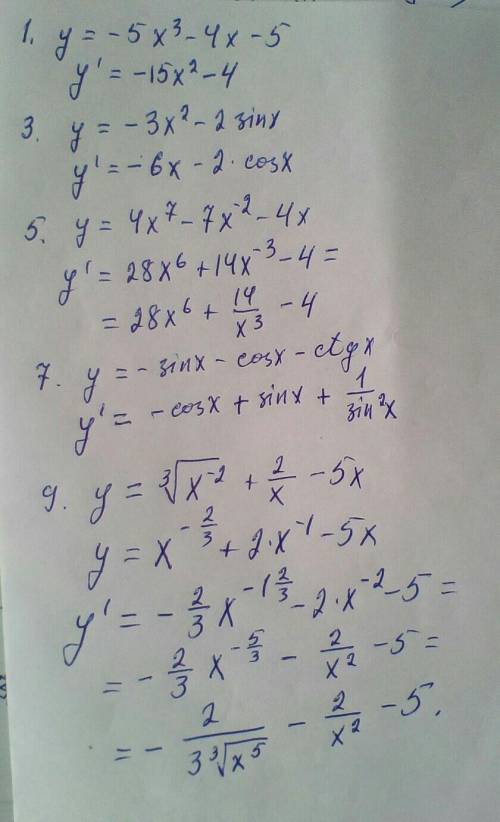 1. y = -5x³ - 4x - 5
y' = -15x² - 4
3. y = -3x² - 2 sinx
y' = -6x - 2 · cosx
5. y = 4x⁷ - 7x⁻² - 4x
y' = 28x⁶ + 14x⁻³ - 4 =
= 28x⁶ + 14/x³ - 4
7. y = -sinx - cosx - ctgx
y' = -cosx + sinx + 1/sin²x
9. y = ∛(x⁻²) + 2/x - 5x
y = x^(-2/3) + 2·x⁻¹ - 5x
y' = -2/3 x^(-1 2/3) - 2·x⁻² - 5 =
= -2/3 x^(-5/3) - 2/x² - 5 =
= - 2/(3∛(x⁵)) - 2/x² - 5.